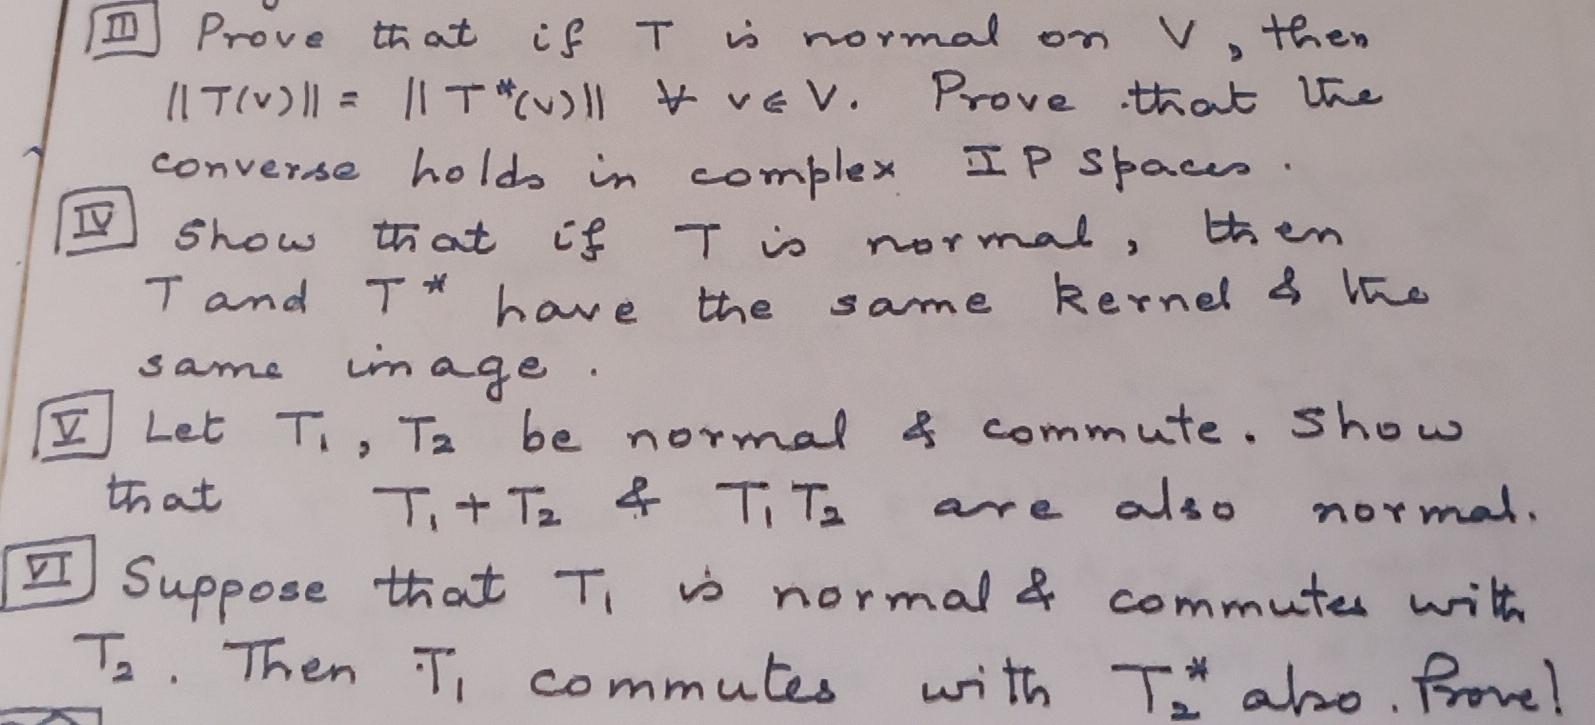 III Prove that if T is normal on V, then
||T(v)|| = ||T*(v)|| ∀ v ∈ V. Prove that the
converse holds in complex IP spaces.
IV Show that if T is normal, then
T and T* have the same kernel & the
same image.
V Let T₁, T₂ be normal & commute. Show
that T₁ + T₂ & T₁ T₂ are also normal.
VI Suppose that T₁ is normal & commutes with
T₂. Then T₁ commutes with T₂* also. Prove!